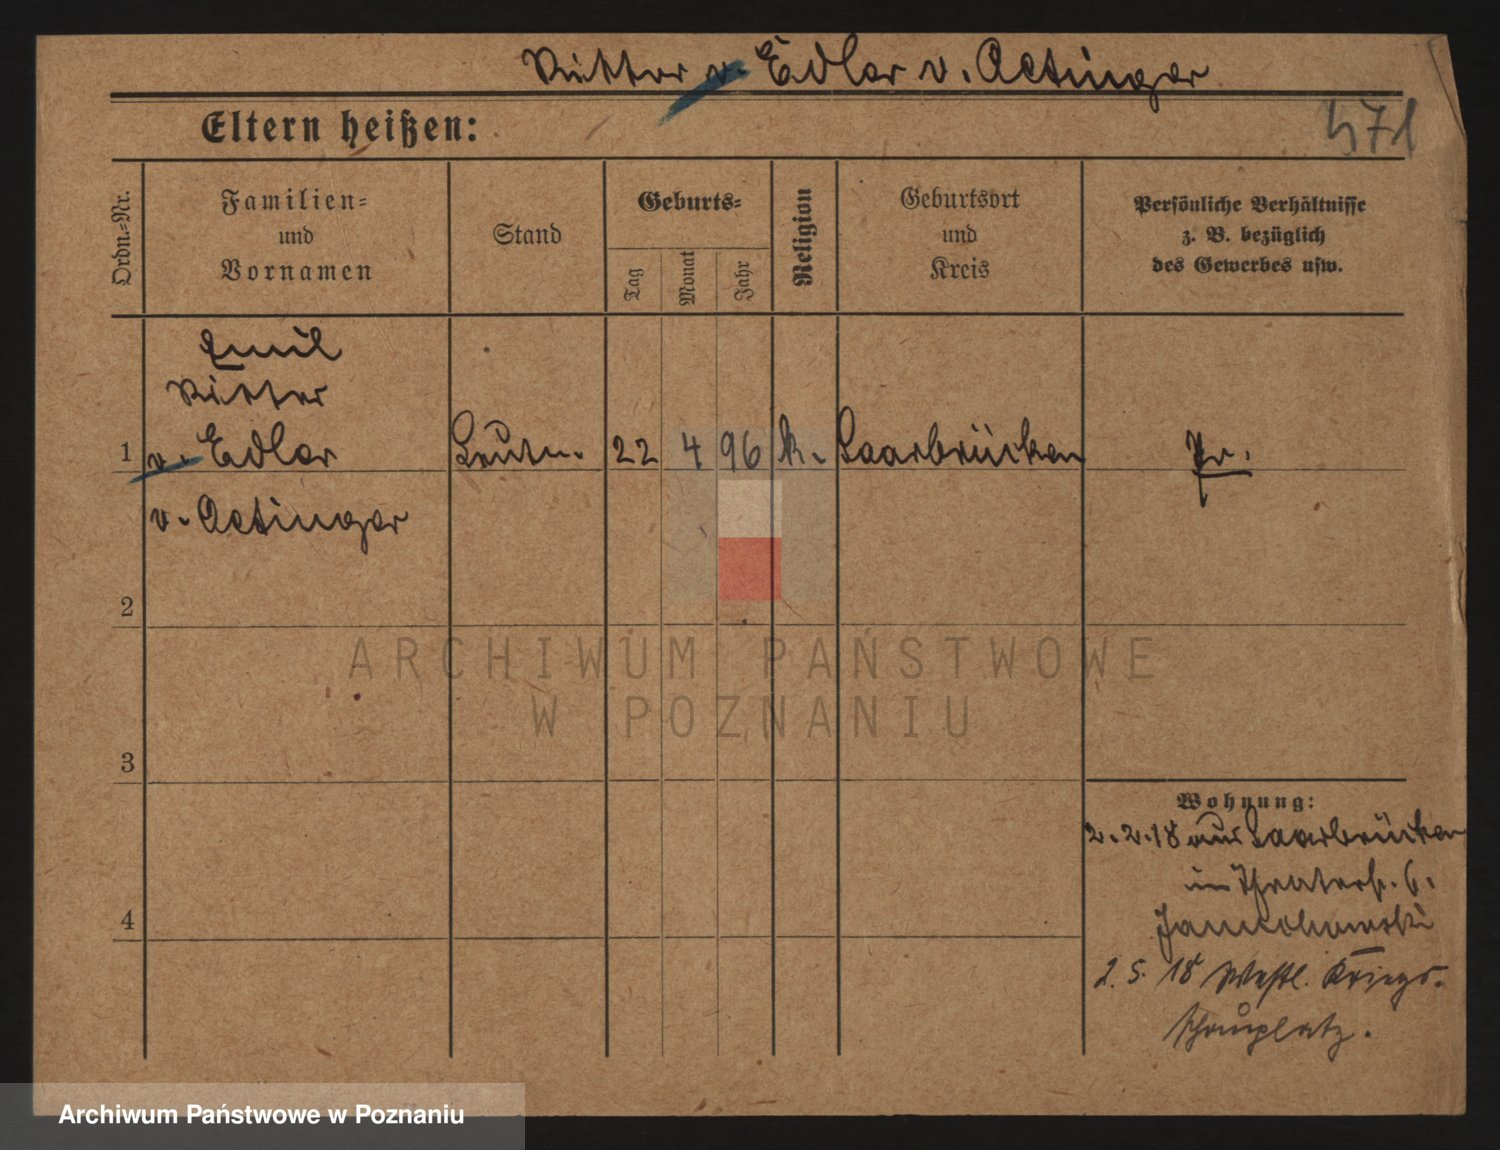 Ritter v. Edler v. Oetinger
Eltern heißen:
571
Ordn.=Nr.
Familien=
und
Vornamen
Stand
Geburts=
Tag
Monat
Jahr
Religion
Geburtsort
und
Kreis
Persönliche Verhältnisse
z. B. bezüglich
des Gewerbes usw.
Emil
Ritter
1 v. Edler Leutn. 22 4 96 k. Saarbrücken Pr.
v. Oetinger
2
ARCHIWUM PAŃSTWOWE
W POZNANIU
3
Wohnung:
2.2.18 aus Saarbrücken
in Theaterstr. 6.
4
2.5.18 Westl. Kriegs-
schauplatz.
Archiwum Państwowe w Poznaniu